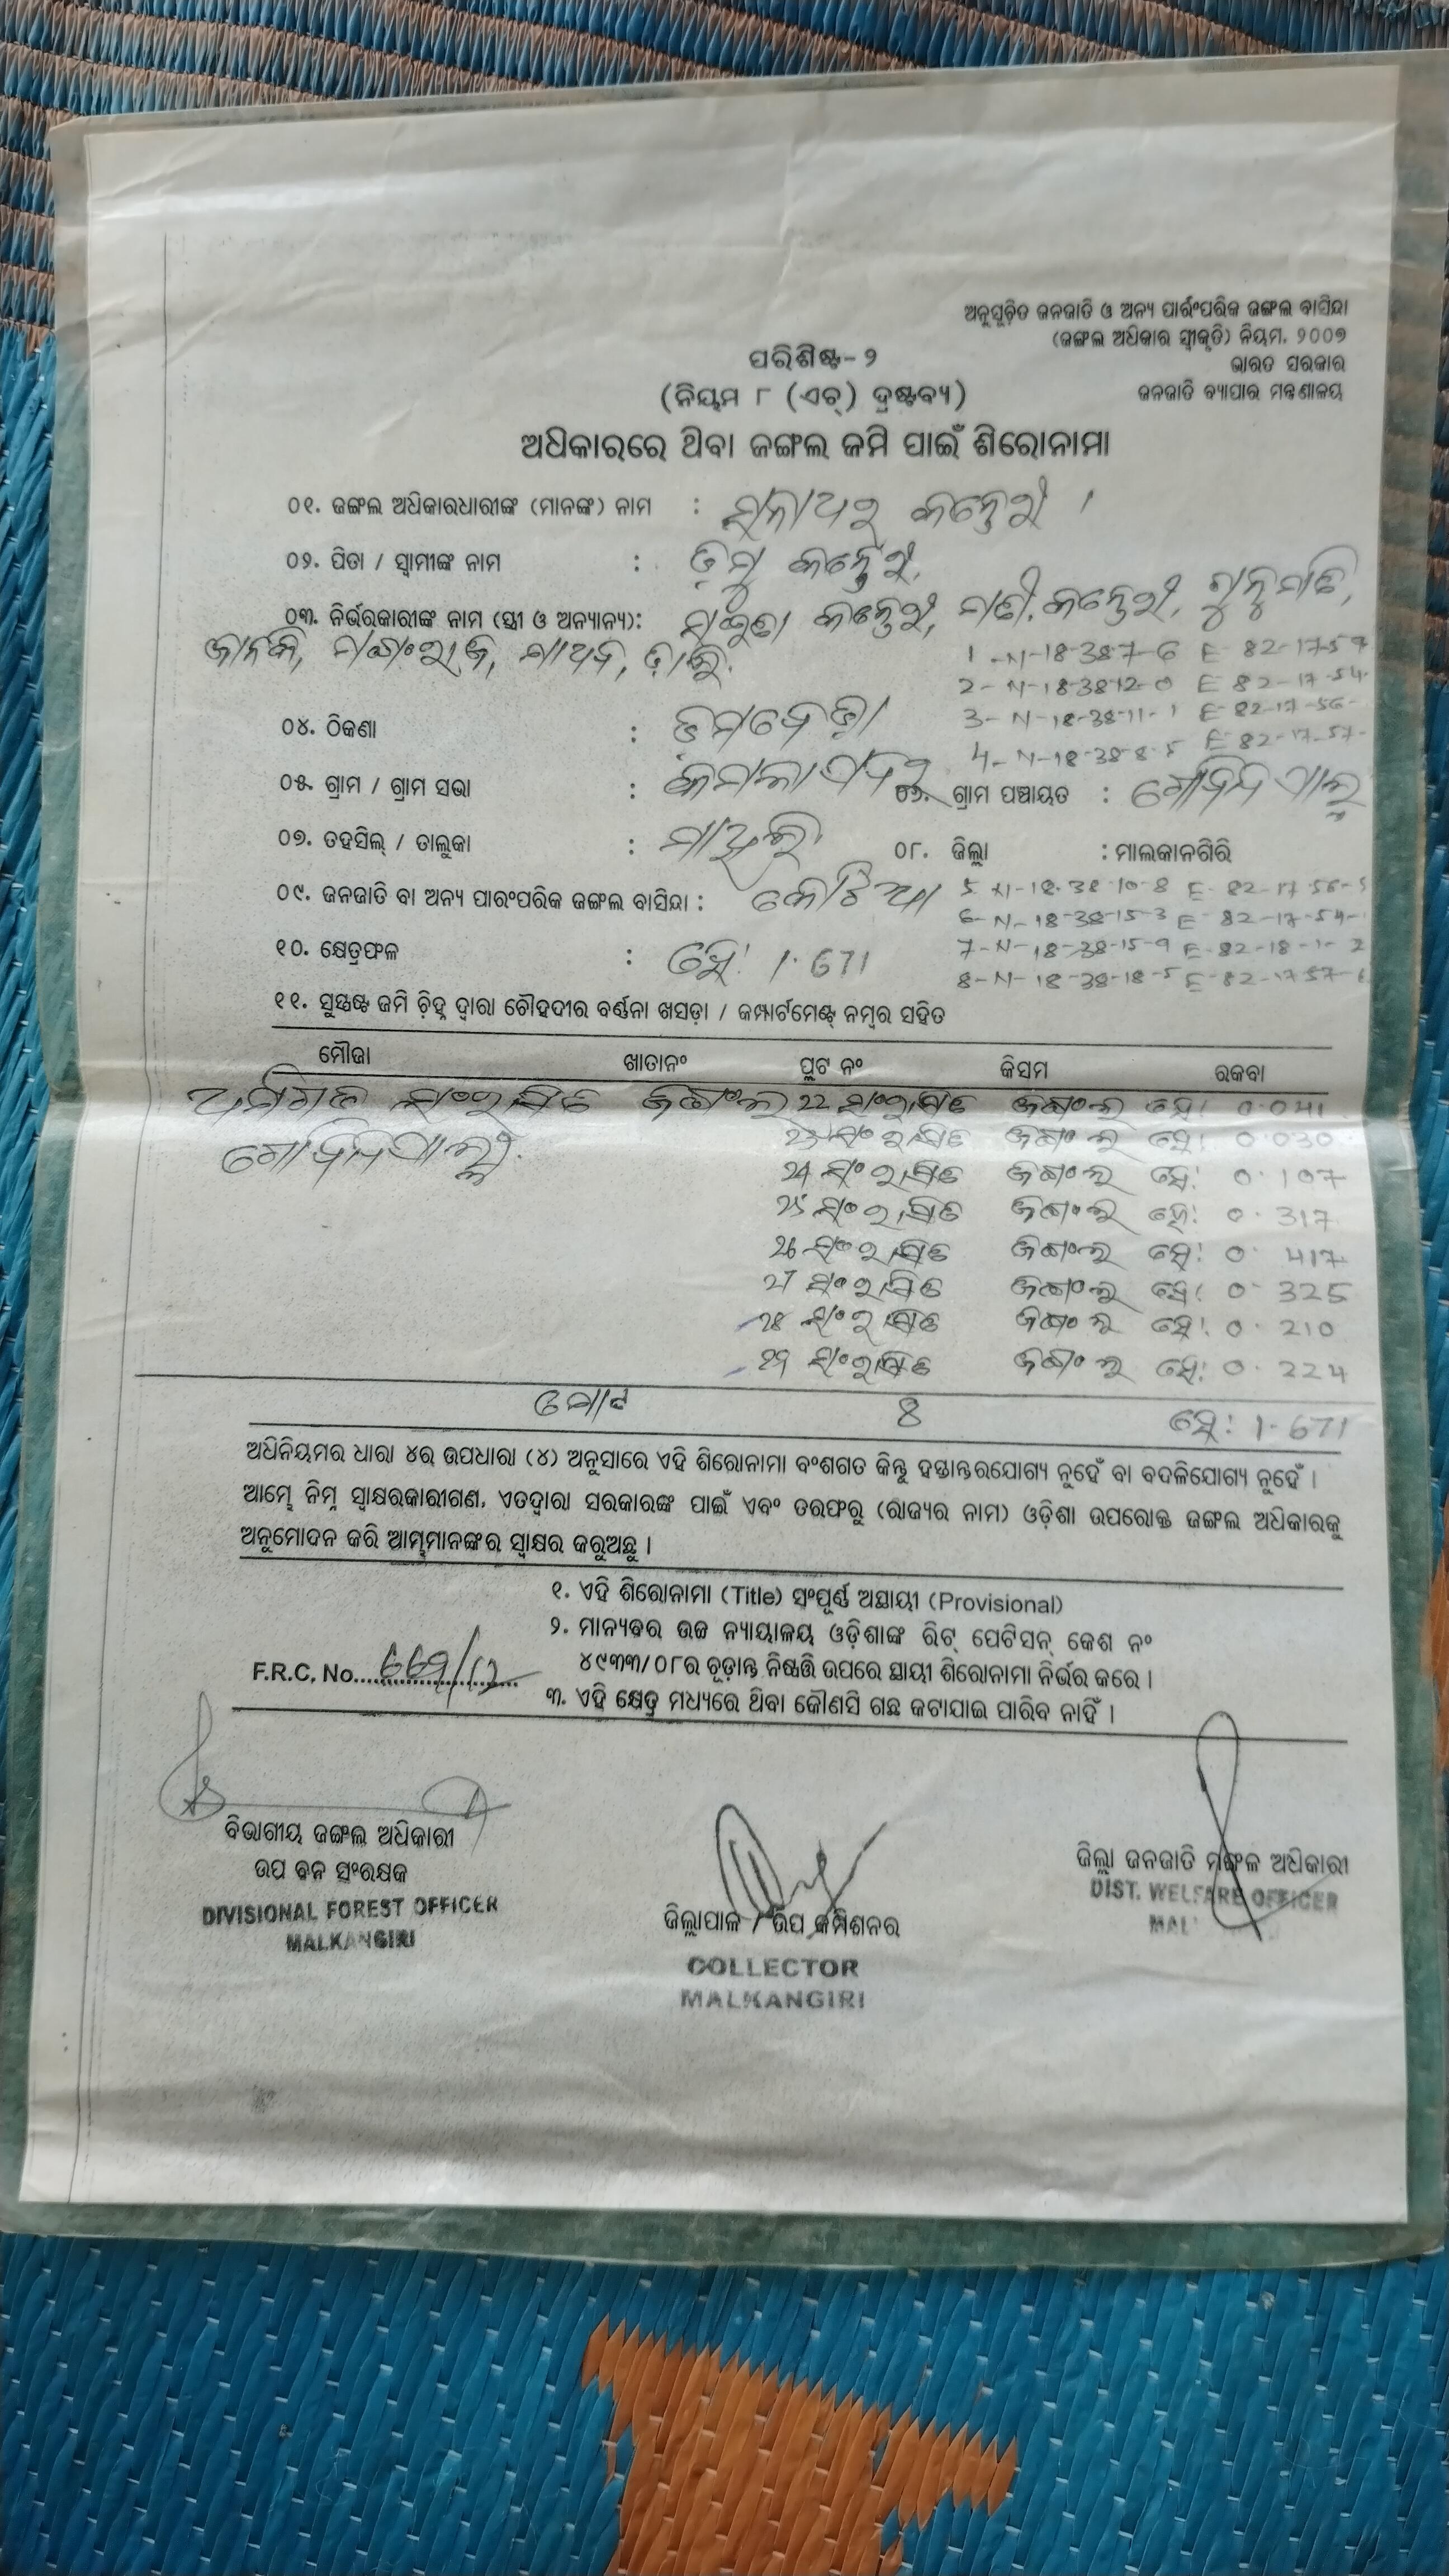 ଅନୁସୂଚିତ ଜନଜାତି ଓ ଅନ୍ୟ ପାରଂପରିକ ଜଙ୍ଗଲ ବାସିନ୍ଦା
(ଜଙ୍ଗଲ ଅଧିକାର ସ୍ୱୀକୃତି) ନିୟମ, ୨୦୦୭
ଭାରତ ସରକାର
ଜନଜାତି ବ୍ୟାପାର ମନ୍ତ୍ରଣାଳୟ
ପରିଶିଷ୍ଟ-୨
(ନିୟମ ୮ (ଏଚ୍) ଦ୍ରଷ୍ଟବ୍ୟ)
ଅଧିକାରରେ ଥିବା ଜଙ୍ଗଲ ଜମି ପାଇଁ ଶିରୋନାମା
୦୧. ଜଙ୍ଗଲ ଅଧିକାରଧାରୀଙ୍କ (ମାନଙ୍କ) ନାମ :
୦୨. ପିତା / ସ୍ୱାମୀଙ୍କ ନାମ :
୦୩. ନିର୍ଭରକାରୀଙ୍କ ନାମ (ସ୍ତ୍ରୀ ଓ ଅନ୍ୟାନ୍ୟ):
1-N-18-38-7-6 E-82-17-59
2-N-18-38-12-0 E 82-17-54
3-N-18-38-11-1 E-82-17-56-
୦୪. ଠିକଣା :
4-N-18-38-8-5 E-82-17-57-
୦୫. ଗ୍ରାମ / ଗ୍ରାମ ସଭା : ୦୬. ଗ୍ରାମ ପଞ୍ଚାୟତ : ଗୋବିନ୍ଦପାଲ୍ଲୀ
୦୭. ତହସିଲ୍ / ତାଲୁକା : ମାଥିଲି ୦୮. ଜିଲ୍ଲା : ମାଲକାନଗିରି
୦୯. ଜନଜାତି ବା ଅନ୍ୟ ପାରଂପରିକ ଜଙ୍ଗଲ ବାସିନ୍ଦା :
5 N-18-38-10-8 E-82-17-56-5
6-N-18-38-15-3 E-82-17-54-
୧୦. କ୍ଷେତ୍ରଫଳ : ହେ: 1.671
7-N-18-38-15-9 E-82-18-1-2
8-N-18-38-18-5 E-82-17-57-6
୧୧. ସୁସ୍ପଷ୍ଟ ଜମି ଚିହ୍ନ ଦ୍ୱାରା ଚୌହଦୀର ବର୍ଣ୍ଣନା ଖସଡ଼ା / କମ୍ପାର୍ଟମେଣ୍ଟ୍ ନମ୍ବର ସହିତ
ମୌଜା ଖାତାନଂ ପ୍ଲଟ ନଂ କିସମ ରକବା
ସଂରକ୍ଷିତ ଜଙ୍ଗଲ 22 ସଂରକ୍ଷିତ ଜଙ୍ଗଲ ହେ: 0.041
ଗୋବିନ୍ଦପାଲ୍ଲୀ 23 ସଂରକ୍ଷିତ ଜଙ୍ଗଲ ହେ: 0.030
24 ସଂରକ୍ଷିତ ଜଙ୍ଗଲ ହେ: 0.107
25 ସଂରକ୍ଷିତ ଜଙ୍ଗଲ ହେ: 0.317
26 ସଂରକ୍ଷିତ ଜଙ୍ଗଲ ହେ: 0.417
27 ସଂରକ୍ଷିତ ଜଙ୍ଗଲ ହେ: 0.325
28 ସଂରକ୍ଷିତ ଜଙ୍ଗଲ ହେ: 0.210
29 ସଂରକ୍ଷିତ ଜଙ୍ଗଲ ହେ: 0.224
ମୋଟ 8 ହେ: 1.671
ଅଧିନିୟମର ଧାରା ୪ର ଉପଧାରା (୪) ଅନୁସାରେ ଏହି ଶିରୋନାମା ବଂଶଗତ କିନ୍ତୁ ହସ୍ତାନ୍ତରଯୋଗ୍ୟ ନୁହେଁ ବା ବଦଳିଯୋଗ୍ୟ ନୁହେଁ ।
ଆମ୍ଭେ ନିମ୍ନ ସ୍ୱାକ୍ଷରକାରୀଗଣ, ଏତଦ୍ୱାରା ସରକାରଙ୍କ ପାଇଁ ଏବଂ ତରଫରୁ (ରାଜ୍ୟର ନାମ) ଓଡ଼ିଶା ଉପରୋକ୍ତ ଜଙ୍ଗଲ ଅଧିକାରକୁ
ଅନୁମୋଦନ କରି ଆମ୍ଭମାନଙ୍କର ସ୍ୱାକ୍ଷର କରୁଅଛୁ ।
୧. ଏହି ଶିରୋନାମା (Title) ସଂପୂର୍ଣ୍ଣ ଅସ୍ଥାୟୀ (Provisional)
୨. ମାନ୍ୟବର ଉଚ୍ଚ ନ୍ୟାୟାଳୟ ଓଡ଼ିଶାଙ୍କ ରିଟ୍ ପେଟିସନ୍ କେଶ ନଂ
୪୯୩୩/୦୮ର ଚୂଡ଼ାନ୍ତ ନିଷ୍ପତ୍ତି ଉପରେ ସ୍ଥାୟୀ ଶିରୋନାମା ନିର୍ଭର କରେ ।
F.R.C. No.
୩. ଏହି କ୍ଷେତ୍ର ମଧ୍ୟରେ ଥିବା କୌଣସି ଗଛ କଟାଯାଇ ପାରିବ ନାହିଁ ।
ବିଭାଗୀୟ ଜଙ୍ଗଲ ଅଧିକାରୀ
ଉପ ବନ ସଂରକ୍ଷକ
DIVISIONAL FOREST OFFICER
MALKANGIRI
ଜିଲ୍ଲାପାଳ / ଉପ କମିଶନର
COLLECTOR
MALKANGIRI
ଜିଲ୍ଲା ଜନଜାତି ମଙ୍ଗଳ ଅଧିକାରୀ
DIST. WELFARE OFFICER
MAL